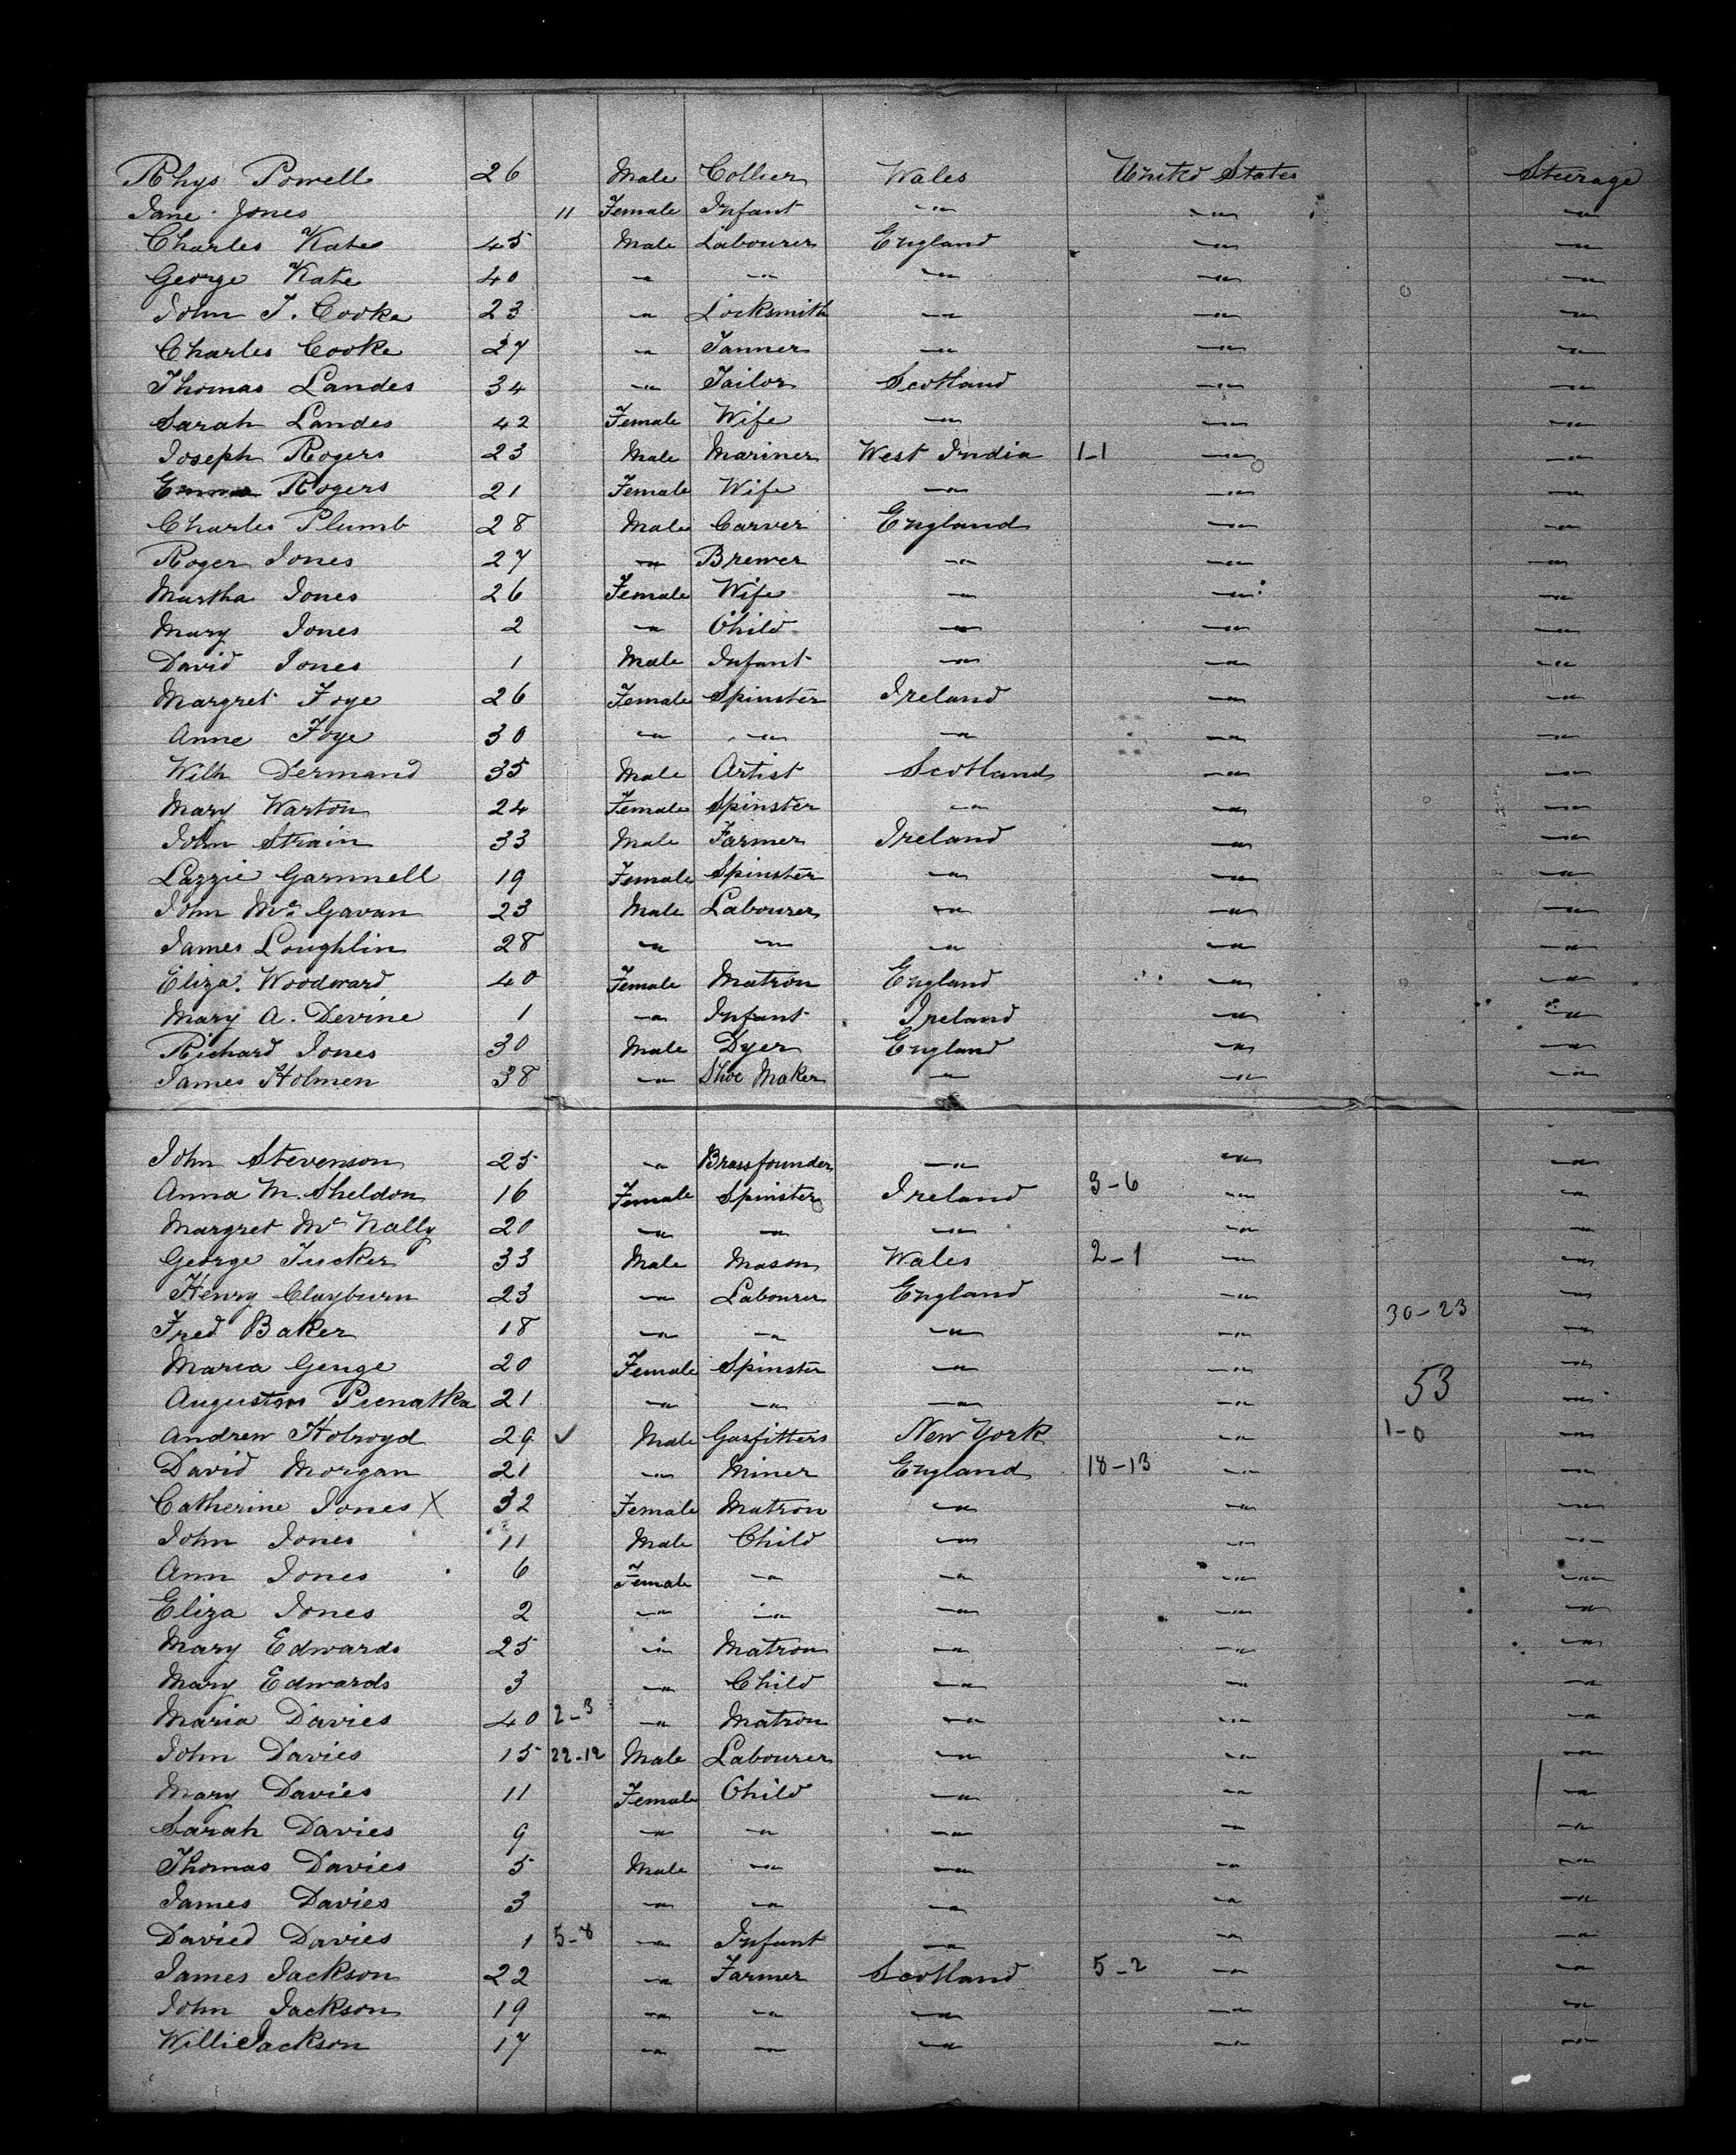 Rhys Powell 26 Male Collier Wales United States Steerage
Jane Jones 11 Female Infant -"- -"- -"-
Charles Kate 45 Male Labourer England -"- -"-
George Kate 40 -"- -"- -"- -"- -"-
John T. Cooke 23 -"- Locksmith -"- -"- -"-
Charles Cooke 27 -"- Tanner -"- -"- -"-
Thomas Landes 34 -"- Tailor Scotland -"- -"-
Sarah Landes 42 Female Wife -"- -"- -"-
Joseph Rogers 23 Male Mariner West India 1-1 -"- -"-
Emma Rogers 21 Female Wife -"- -"- -"-
Charles Plumb 28 Male Carver England -"- -"-
Roger Jones 27 -"- Brewer -"- -"- -"-
Martha Jones 26 Female Wife -"- -"- -"-
Mary Jones 2 -"- Child -"- -"- -"-
David Jones 1 Male Infant -"- -"- -"-
Margret Foye 26 Female Spinster Ireland -"- -"-
Anne Foye 30 -"- -"- -"- -"- -"-
Wilh Dermand 35 Male Artist Scotland -"- -"-
Mary Warton 24 Female Spinster -"- -"- -"-
John Strain 33 Male Farmer Ireland -"- -"-
Lizzie Gammell 19 Female Spinster -"- -"- -"-
John Mc Gavan 23 Male Labourer -"- -"- -"-
James Loughlin 28 -"- -"- -"- -"- -"-
Eliza. Woodward 40 Female Matron England -"- -"-
Mary A. Devine 1 -"- Infant Ireland -"- -"-
Richard Jones 30 Male Dyer England -"- -"-
James Holmen 38 -"- Shoe Maker -"- -"- -"-
John Stevenson 25 -"- Brassfounder -"- -"- -"-
Anna M. Sheldon 16 Female Spinster Ireland 3-6 -"- -"-
Margret Mc Nally 20 -"- -"- -"- -"- -"-
George Tucker 33 Male Mason Wales 2-1 -"- -"-
Henry Clayburn 23 -"- Labourer England -"- -"-
Fred Baker 18 -"- -"- -"- -"- 30-23 -"-
Maria Genge 20 Female Spinster -"- -"- -"-
Augustus Pienatka 21 -"- -"- -"- -"- 53 -"-
Andrew Holroyd 29 ✓ Male Gasfitters New York -"- 1-0 -"-
David Morgan 21 -"- Miner England 18-13 -"- -"-
Catherine Jones X 32 Female Matron -"- -"- -"-
John Jones 11 Male Child -"- -"- -"-
Ann Jones 6 Female -"- -"- -"- -"-
Eliza Jones 2 -"- -"- -"- -"- -"-
Mary Edwards 25 -"- Matron -"- -"- -"-
Mary Edwards 3 -"- Child -"- -"- -"-
Maria Davies 40 2-3 -"- Matron -"- -"- -"-
John Davies 15 22-12 Male Labourer -"- -"- -"-
Mary Davies 11 Female Child -"- -"- -"-
Sarah Davies 9 -"- -"- -"- -"- -"-
Thomas Davies 5 Male -"- -"- -"- -"-
James Davies 3 -"- -"- -"- -"- -"-
Davied Davies 1 5-8 -"- Infant -"- -"- -"-
James Jackson 22 -"- Farmer Scotland 5-2 -"- -"-
John Jackson 19 -"- -"- -"- -"- -"-
Willie Jackson 17 -"- -"- -"- -"- -"-